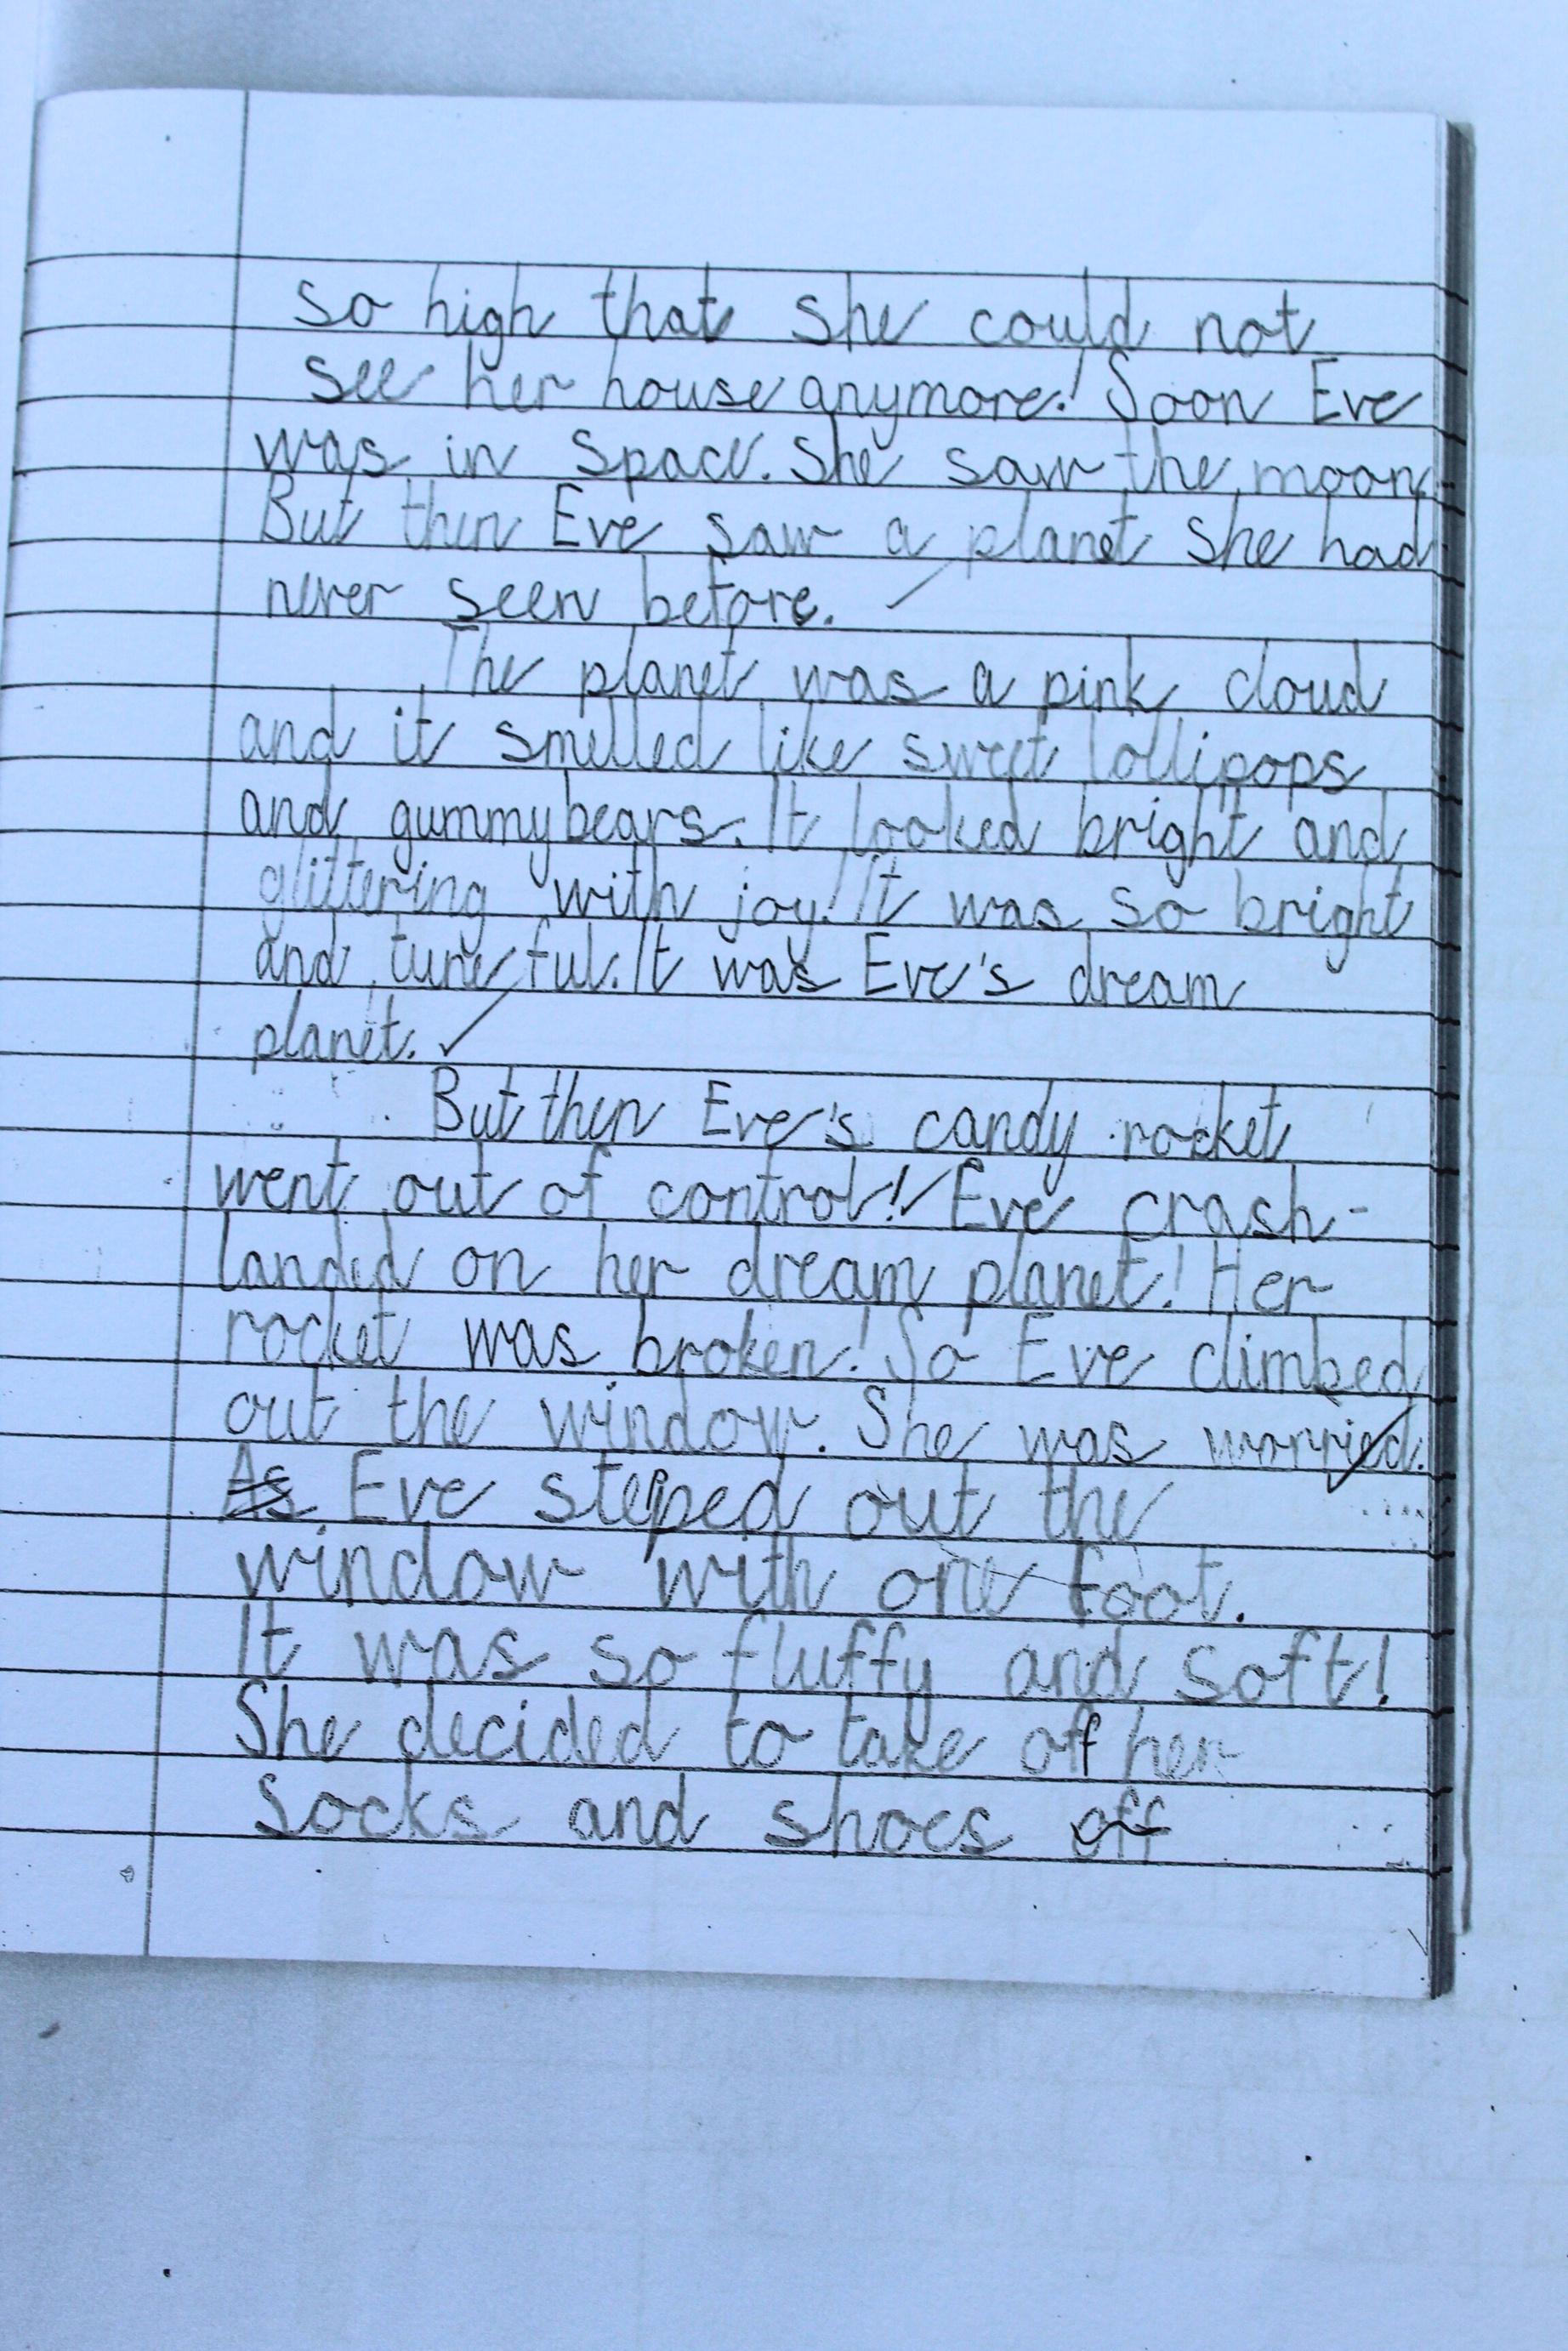 so high that she could not
see her house anymore! Soon Eve
was in space. She saw the moon.
But then Eve saw a planet she had
never seen before.
The planet was a pink cloud
and it smelled like sweet lollipops
and gummybears. It looked bright and
glittering with joy! It was so bright
and tuneful. It was Eve's dream
planet.
But then Eve's candy rocket
went out of control! Eve crash-
landed on her dream planet! Her
rocket was broken! So Eve climbed
out the window. She was worried.
As Eve stepped out the
window with one foot.
It was so fluffy and soft!
She decided to take off her
socks and shoes off